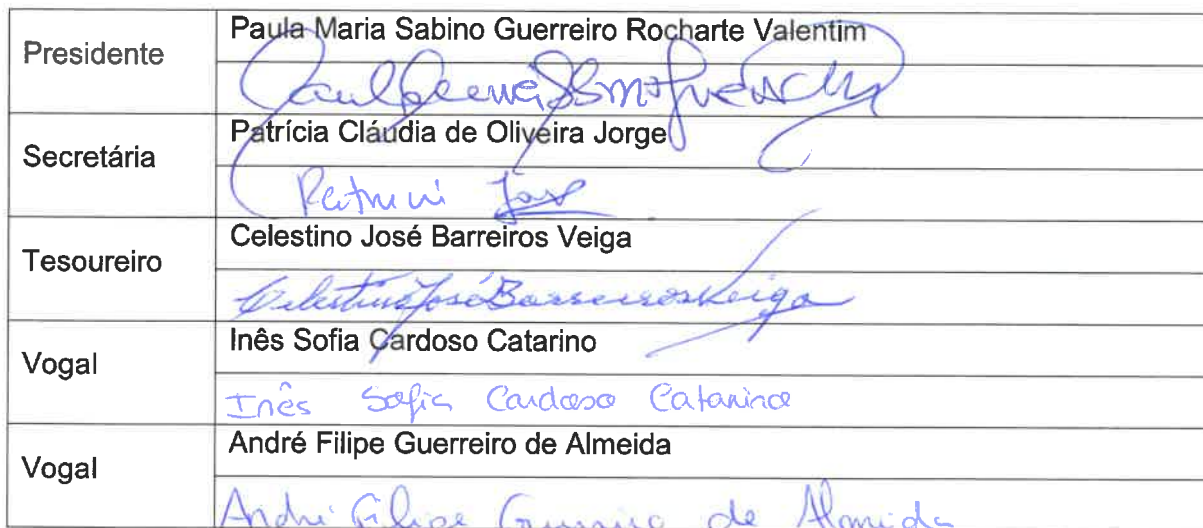 Presidente
Paula Maria Sabino Guerreiro Rocharte Valentim
Secretária
Patrícia Cláudia de Oliveira Jorge
Tesoureiro
Celestino José Barreiros Veiga
Celestino José Barreiros Veiga
Vogal
Inês Sofia Cardoso Catarino
Inês Sofia Cardoso Catarino
Vogal
André Filipe Guerreiro de Almeida
André Filipe Guerreiro de Almeida